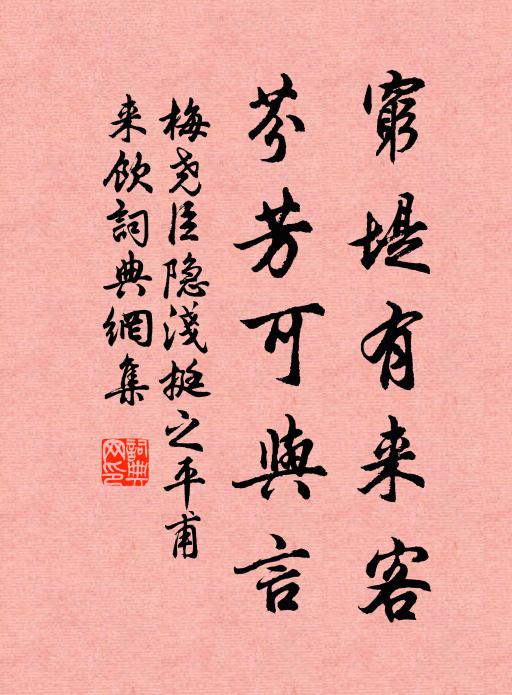 窮堤有来客
芬芳可與言
梅尧臣隐淺挺之平甫
来飲詞典網集
詞典网印